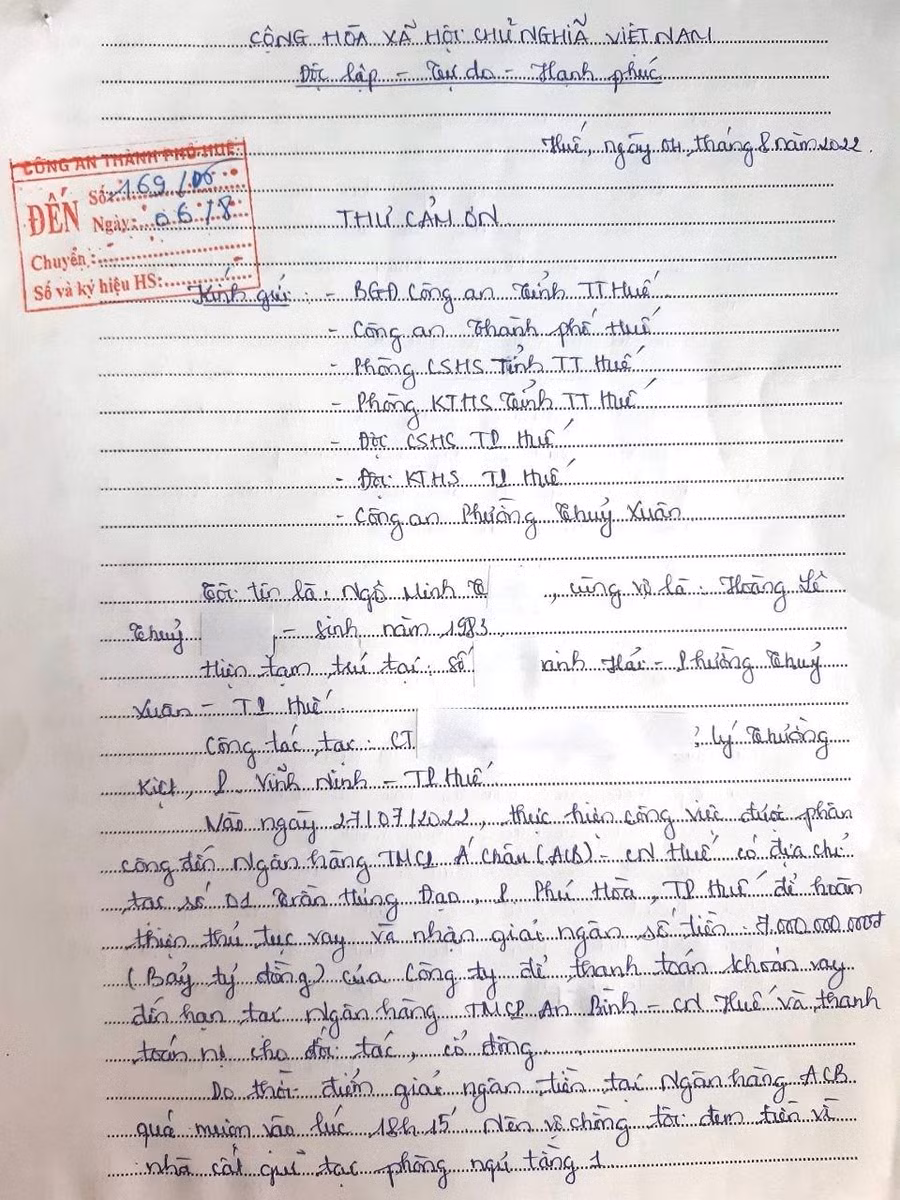 CỘNG HÒA XÃ HỘI CHỦ NGHĨA VIỆT NAM
Độc lập - Tự do - Hạnh phúc
Huế, ngày 04, tháng 8 năm 2022.
CÔNG AN THÀNH PHỐ HUẾ
ĐẾN
Số: 169/06
Ngày: 06/8
Chuyển:
Số và ký hiệu HS:
THƯ CẢM ƠN
Kính gửi: - BGĐ Công an Tỉnh TT Huế
- Công an Thành phố Huế
- Phòng CSHS Tỉnh TT Huế
- Phòng KTHS Tỉnh TT Huế
- Đội CSHS TP Huế
- Đội KTHS TP Huế
- Công an Phường Thuỷ Xuân
Tôi tên là: Ngô Minh T , cùng vợ là: Hoàng Lê
Thuỷ - Sinh năm 1983
Hiện tạm trú tại: Số Hải - Phường Thuỷ
Xuân - TP Huế
Công tác tại: CT Lý Thường
Kiệt, P Vĩnh Ninh - TP Huế
Vào ngày 27/07/2022, thực hiện công việc được phân
công đến Ngân hàng TMCP Á Châu (ACB) - CN Huế có địa chỉ
tại số 01 Trần Hưng Đạo, P Phú Hòa, TP Huế để hoàn
thiện thủ tục vay và nhận giải ngân số tiền: 7.000.000.000đ
(Bảy tỷ đồng) của Công ty để thanh toán khoản vay
đến hạn tại Ngân hàng TMCP An Bình - CN Huế và thanh
toán nợ cho đối tác, cổ đông
Do thời điểm giải ngân tiền tại Ngân hàng ACB
quá muộn vào lúc 18h15' Nên vợ chồng tôi đem tiền về
nhà cất giữ tại phòng ngủ tầng 1